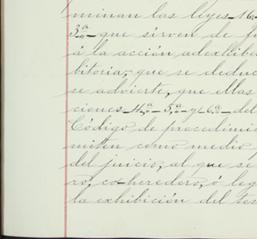 minan las leyes 16
3ª que sirven de f
á la acción adexhibe
bitoria, que se deduc
se advierte, que ellas
ciones 4ª, 5ª y 6ª del
Código de procedimie
miten como medio
del juicio, al que se
ro, co-heredero, ó leg
la exhibición del tes